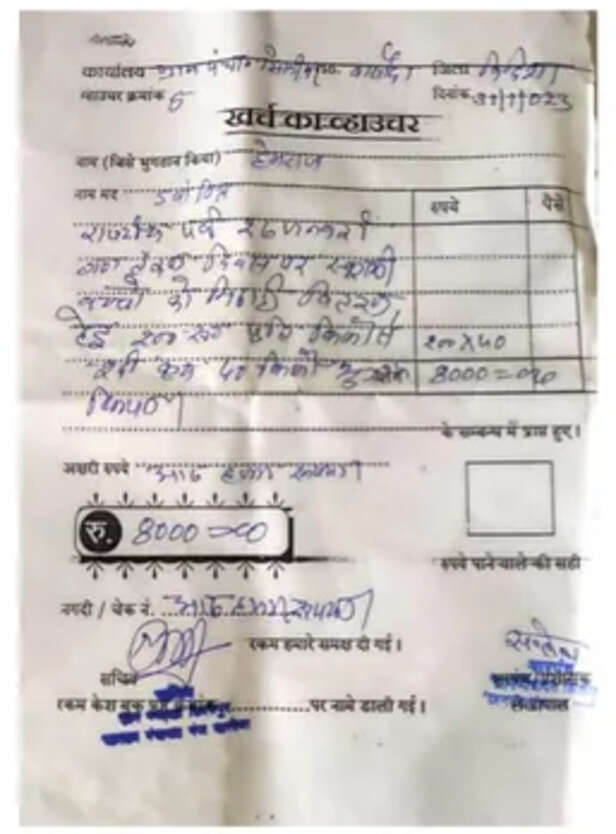 कार्यालय ग्राम पंचा० जिला विदिशा
वाउचर क्रमांक 5 दिनांक 31/1/023
खर्च का व्हाउचर
नाम (जिसे भुगतान किया) हेमराज
नाम मद
रुपये पैसे
राष्ट्रीय पर्व २६ जनवरी
गणतंत्र दिवस पर स्कूली
बच्चो को मिठाई वितरण
हेतु २०० रू० प्रति किलो से
२००X४०
किलो 8000=00
किया०।
के सम्बन्ध में प्राप्त हुए।
अक्षरी रुपये आठ हजार रूपया।
रु. 8000=00
रुपये पाने वाले की सही
नगदी / चेक नं. आठ हजार रूपया।
रकम हमारे समक्ष दी गई।
सचिव
सरपंच/प्रशासक
रकम केश बुक पर नामे डाली गई। लेखापाल